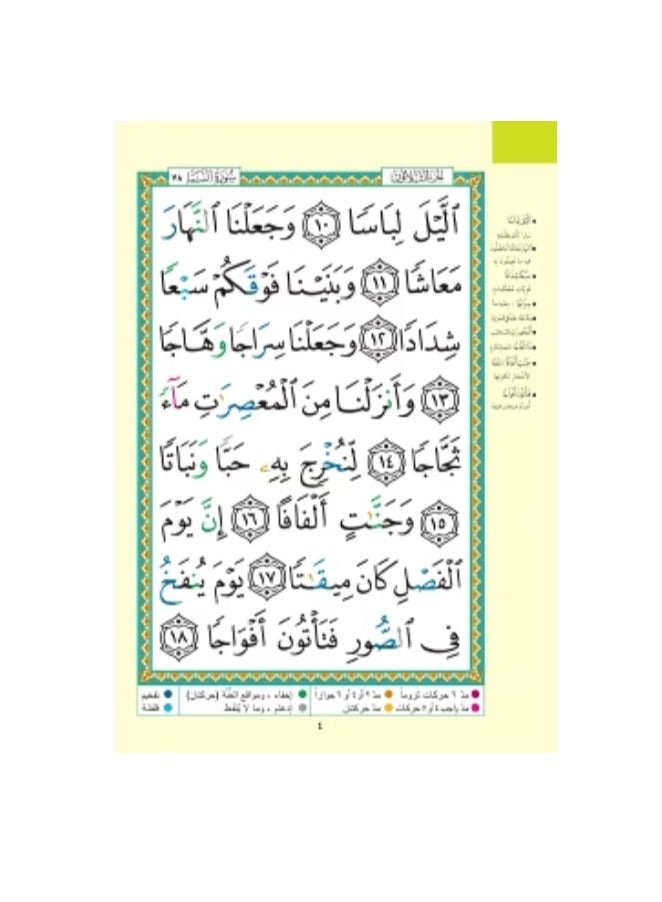 سورة النبإ ٧٨
الجزء الثلاثون
الَّيْلَ لِبَاسًا ١٠ وَجَعَلْنَا النَّهَارَ
مَعَاشًا ١١ وَبَنَيْنَا فَوْقَكُمْ سَبْعًا
شِدَادًا ١٢ وَجَعَلْنَا سِرَاجًا وَهَّاجًا
١٣ وَأَنزَلْنَا مِنَ الْمُعْصِرَاتِ مَآءً
ثَجَّاجًا ١٤ لِّنُخْرِجَ بِهِۦ حَبًّا وَنَبَاتًا
١٥ وَجَنَّاتٍ أَلْفَافًا ١٦ إِنَّ يَوْمَ
الْفَصْلِ كَانَ مِيقَاتًا ١٧ يَوْمَ يُنفَخُ
فِي الصُّورِ فَتَأْتُونَ أَفْوَاجًا ١٨
مدّ ٦ حركات لزوماً
مدّ ٢ أو ٤ أو ٦ جوازاً
إخفاء ، ومواقع الغنّة (حركتان)
تفخيم
مدّ واجب ٤ أو ٥ حركات
مدّ حركتان
إدغام ، وما لا يُلفظ
قلقلة
٤